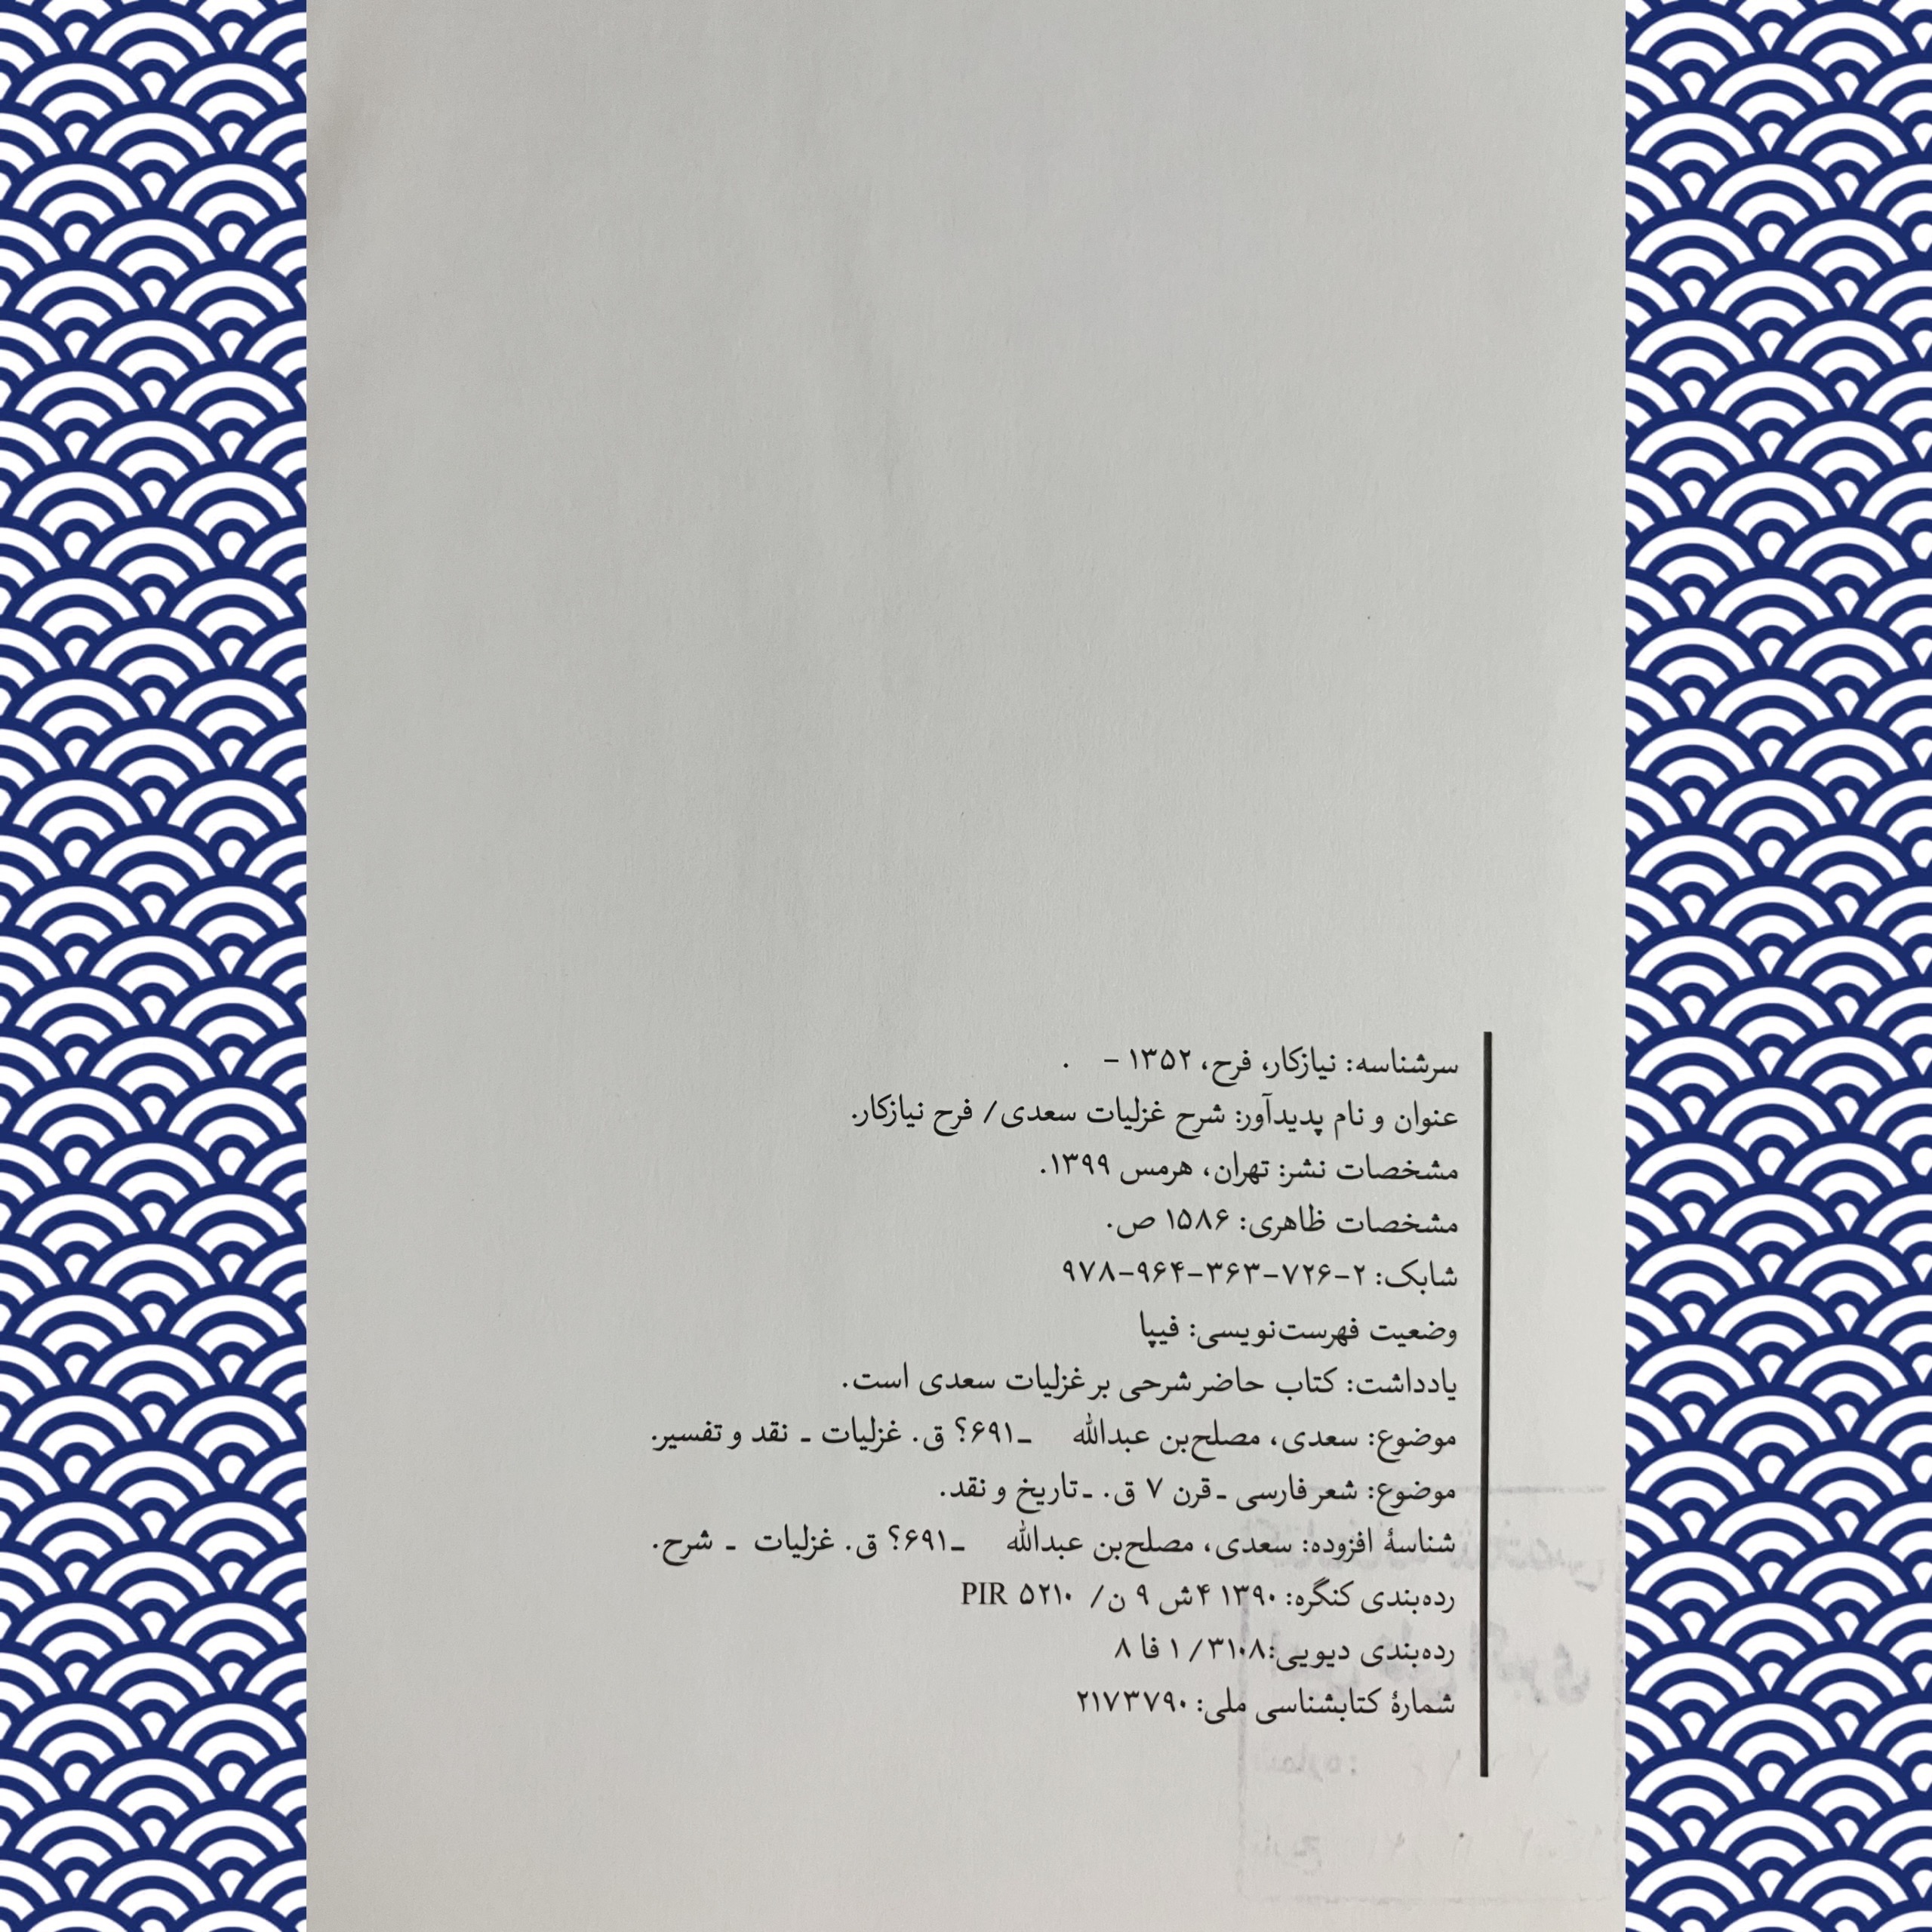 سرشناسه: نیازکار، فرح، ۱۳۵۲ – .
عنوان و نام پدیدآور: شرح غزلیات سعدی/ فرح نیازکار.
مشخصات نشر: تهران، هرمس ۱۳۹۹.
مشخصات ظاهری: ۱۵۸۶ ص.
شابک: ۲-۷۲۶-۳۶۳-۹۶۴-۹۷۸
وضعیت فهرست‌نویسی: فیپا
یادداشت: کتاب حاضر شرحی بر غزلیات سعدی است.
موضوع: سعدی، مصلح‌بن عبدالله ـ۶۹۱؟ ق. غزلیات ـ نقد و تفسیر.
موضوع: شعر فارسی ـ قرن ۷ ق. ـ تاریخ و نقد.
شناسهٔ افزوده: سعدی، مصلح‌بن عبدالله ـ۶۹۱؟ ق. غزلیات ـ شرح.
رده‌بندی کنگره: ۱۳۹۰ ۴ش ۹ ن/ PIR ۵۲۱۰
رده‌بندی دیویی:۳۱۰۸/ ۱ فا ۸
شمارهٔ کتابشناسی ملی: ۲۱۷۳۷۹۰